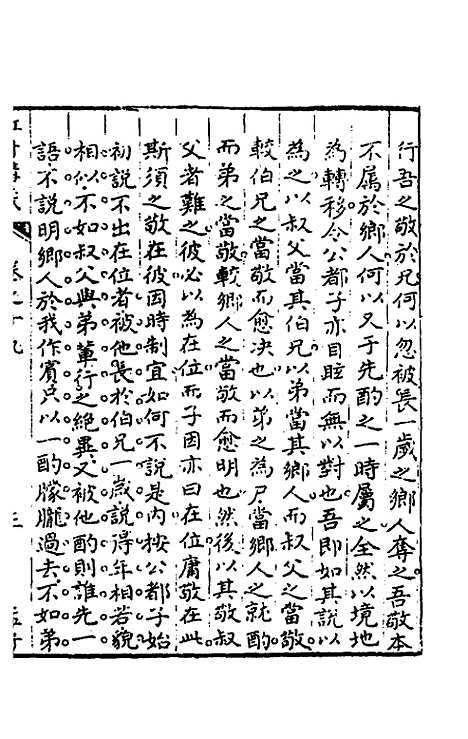 行吾之敬於兄何以忽被長一歲之鄉人奪之吾敬本
不屬於鄉人何以又于先酌之一時屬之全然以境地
為轉移令公都子亦目眩而無以對也吾即如其說以
為之以叔父當其伯兄以弟當其鄉人而叔父之當敬
較伯兄之當敬而愈决也以弟之為尸當鄉人之就酌
而弟之當敬較鄉人之當敬而愈明也然後以其敬叔
父者難之彼必以為在位而子因亦曰在位庸敬在此
斯須之敬在彼因時制宜如何不說是内按公都子始
初說不出在位者被他長於伯兄一歲說得年相若貌
相似不如叔父與弟輩行之絶異又被他酌則誰先一
語不說明鄉人於我作賓只以一酌朦朧過去不如弟
卷之十九 三 孟子